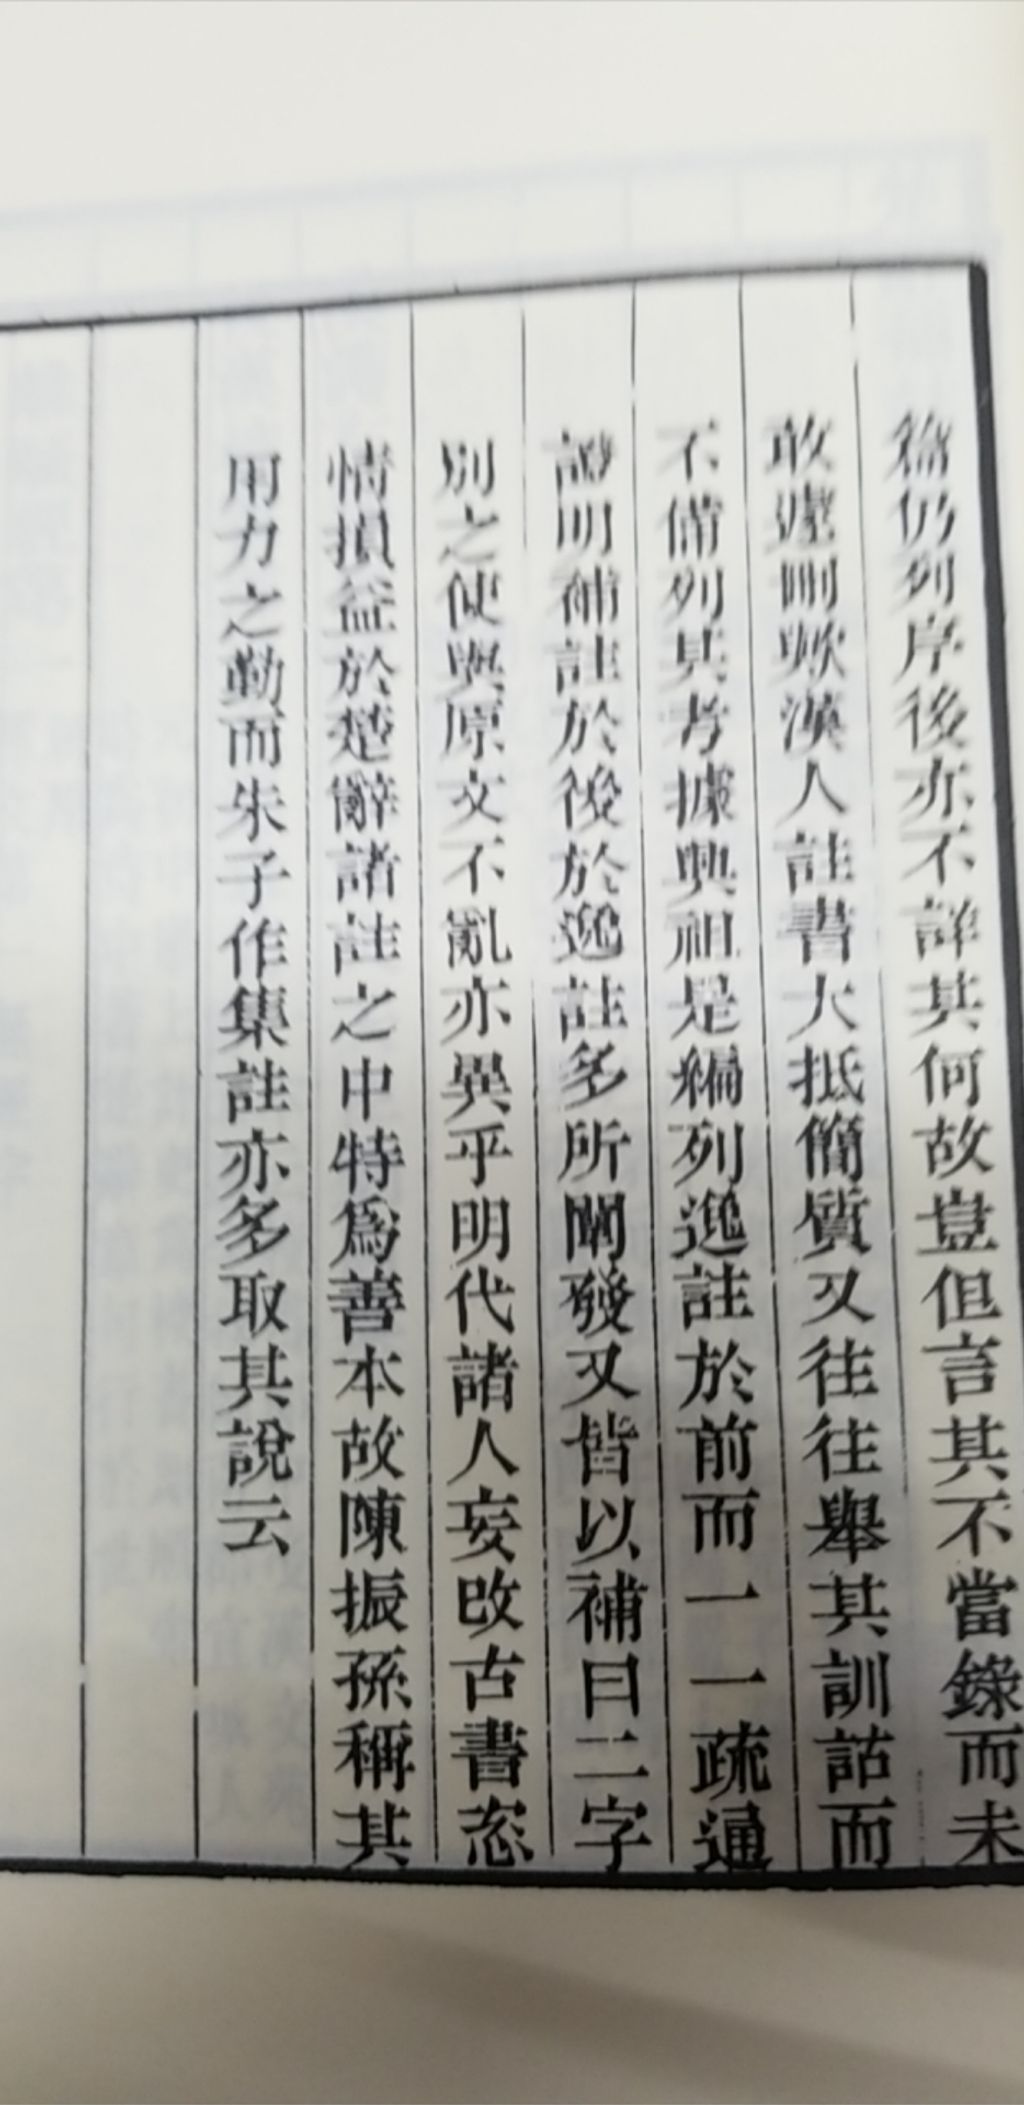 篇仍列序後亦不詳其何故豈但言其不當錄而未
敢遽刪歟漢人註書大抵簡質又往往舉其訓詁而
不備列其考據興祖是編列逸註於前而一一疏通
證明補註於後於逸註多所闡發又皆以補曰二字
別之使與原文不亂亦異乎明代諸人妄改古書恣
情損益於楚辭諸註之中特為善本故陳振孫稱其
用力之勤而朱子作集註亦多取其說云